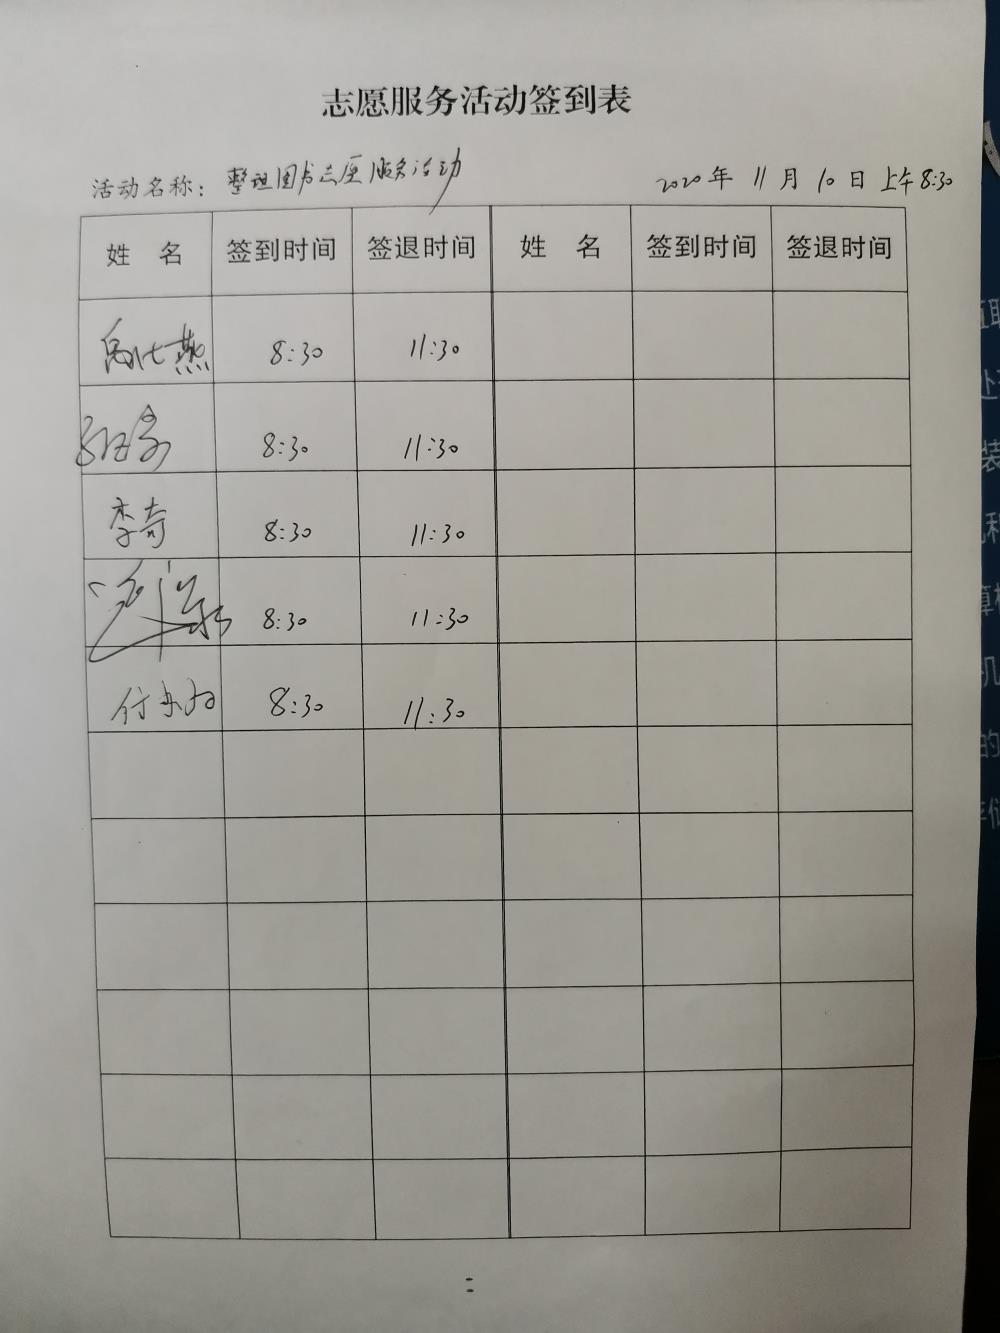 志愿服务活动签到表
活动名称：整理图书志愿服务活动 2020年 11月 10日 上午8:30
姓 名 签到时间 签退时间 姓 名 签到时间 签退时间
8:30 11:30
8:30 11:30
李奇 8:30 11:30
8:30 11:30
付 8:30 11:30